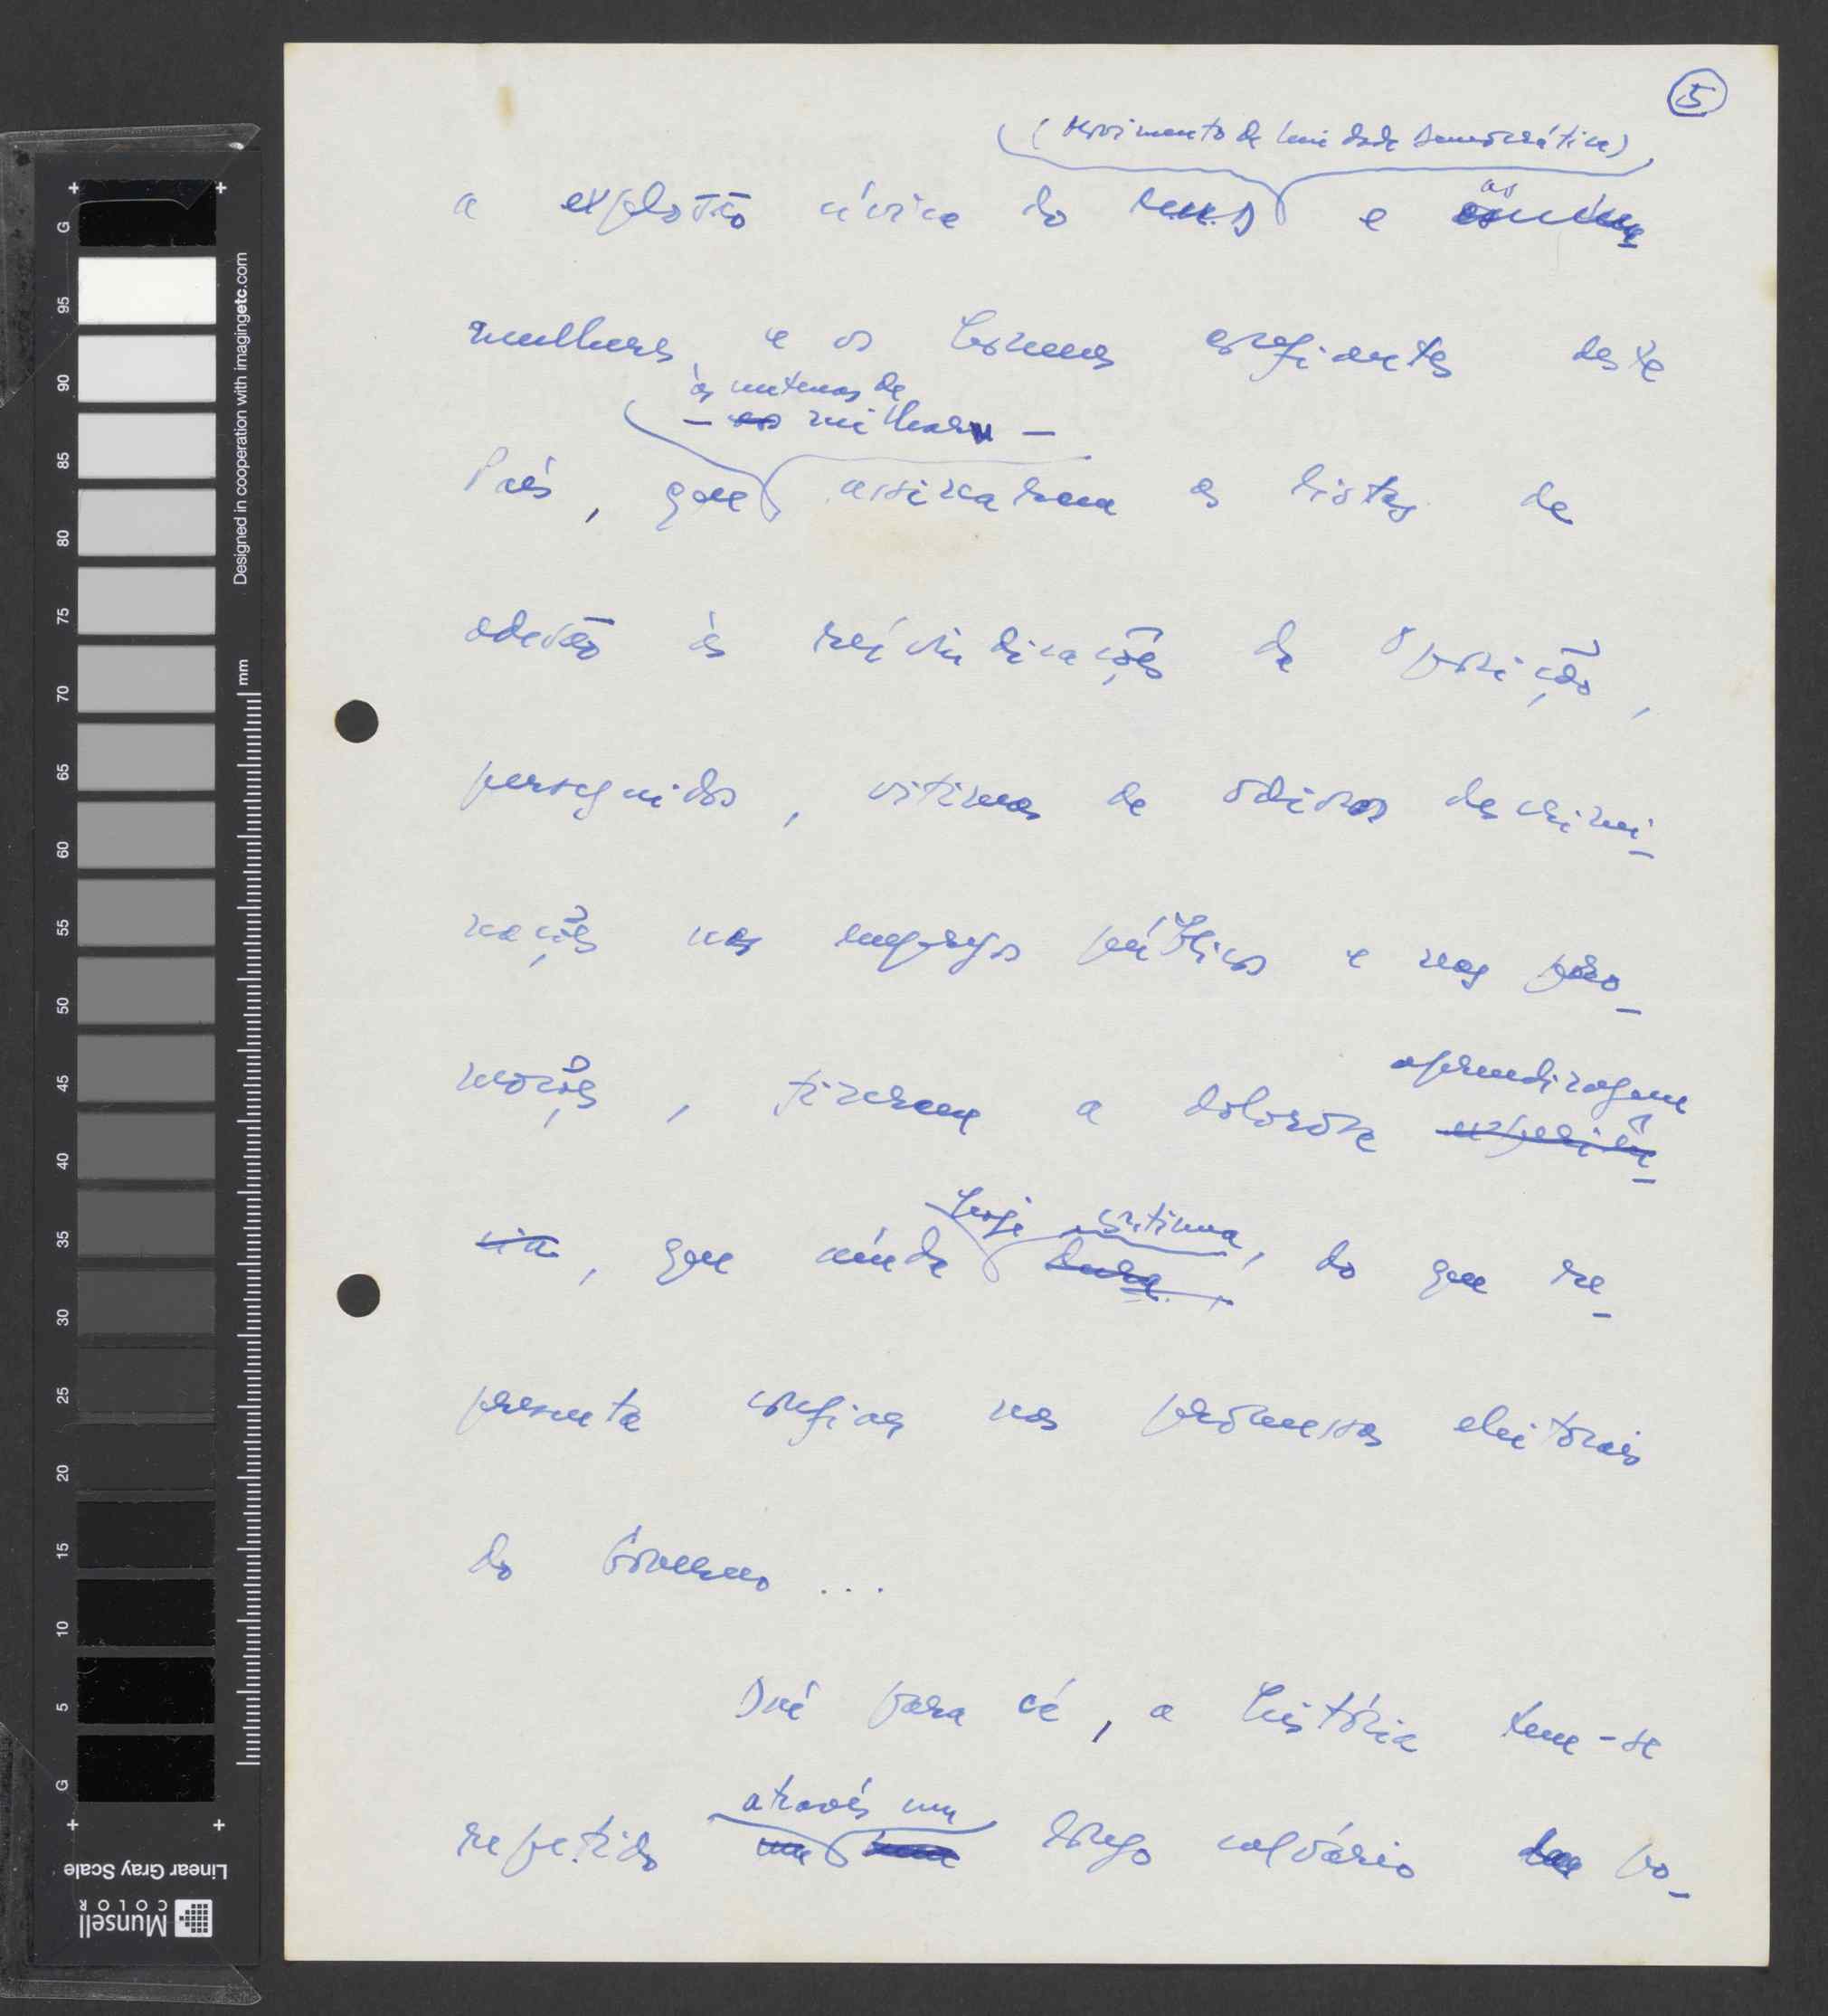 5
(Movimento de Unidade Democrática)
a explosão cívica do M.U.D e as
mulheres, e os homens confiantes deste
às centenas de
— os milhares —
País, que assinaram as listas de
adesão às reivindicações da Oposição,
perseguidos, vítimas de odiosas descrimi-
nações nos empregos públicos e nas pro-
moções, fizeram a dolorosa experiên-
aprendizagem
cia, que ainda dura, do que re-
hoje continua,
presenta confiar nas promessas eleitorais
do Governo ...
Daí para cá, a história tem-se
através um
repetido um longo calvário po-
G
95
90
85
80
75
70
65
60
55
50
45
40
35
30
25
20
15
10
5
G
Designed in cooperation with imagingetc.com
mm
Linear Gray Scale
Munsell
COLOR